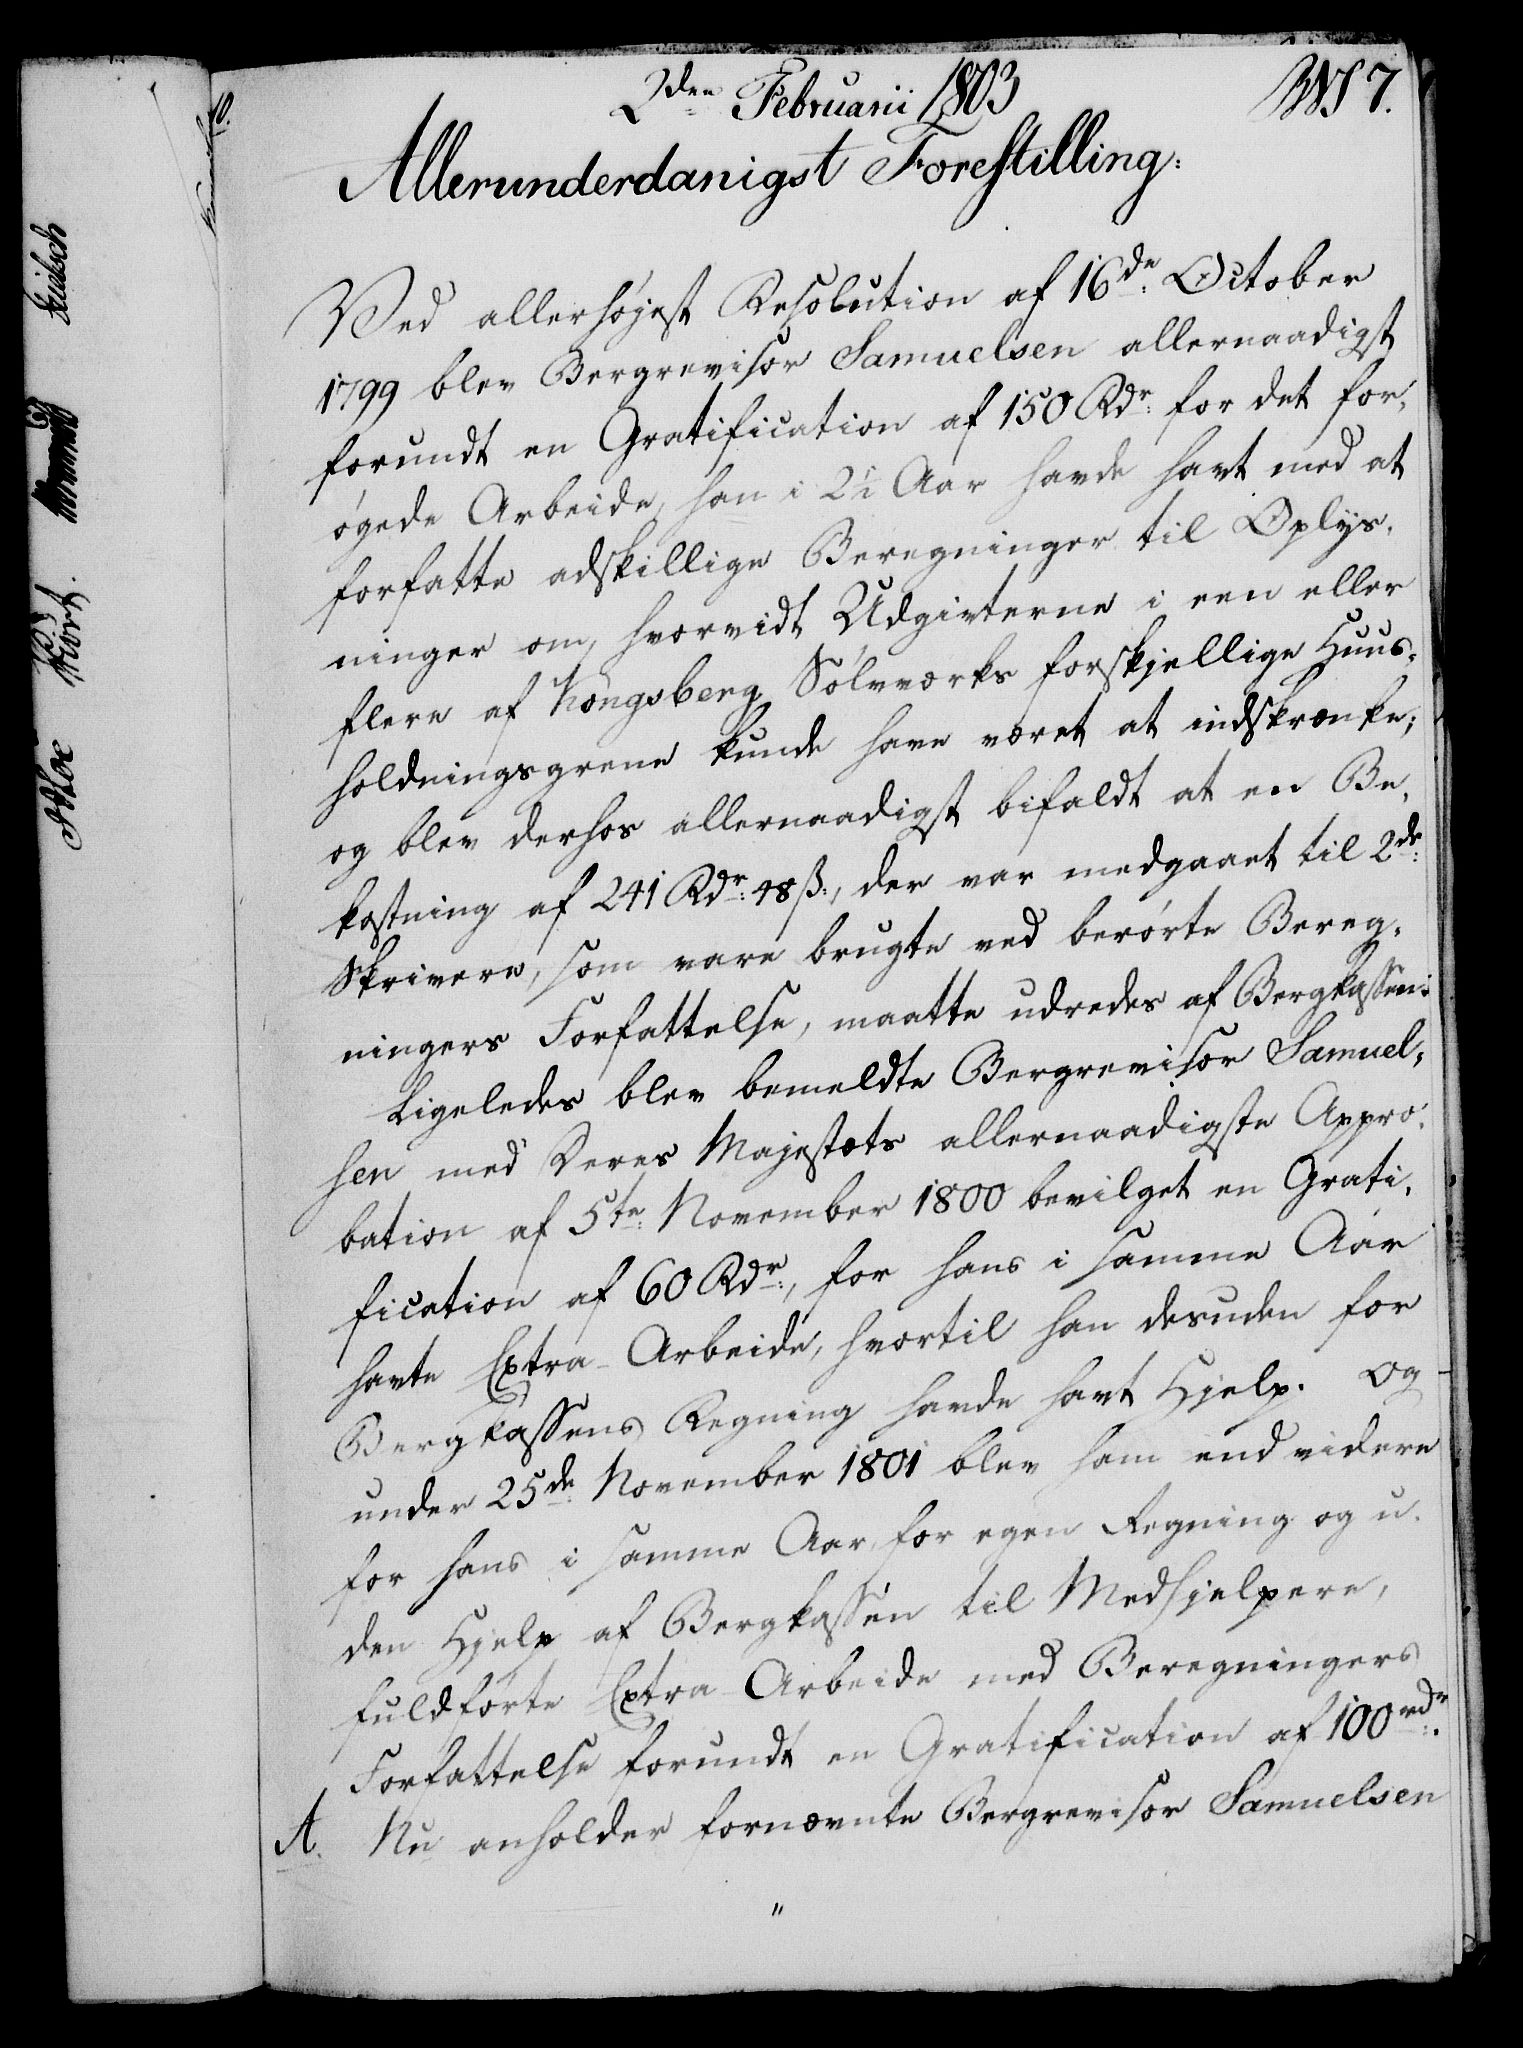 2den Februarii 1803
No 7.
Allerunderdanigst Forestilling:
Ved allerhøjest Resolution af 16de: October
1799 blev Bergrevisor Samuelsen allernaadigst
forundt en Gratification af 150 Rdr: for det for-
øgede Arbeide, han i 2½ Aar havde havt med at
forfatte adskillige Beregninger til Oplys-
ninger om, hvorvidt Udgivterne i een eller
flere af Kongsberg Sølvværks forskjellige Huus-
holdningsgrene kunde have været at indskrænke;
og blev derhos allernaadigst bifaldt at en Be-
kostning af 241 Rdr: 48 ß:, der var medgaaet til 2de:
Skrivere, som vare brugte ved berørte Bereg-
ningers Forfattelse, maatte udredes af Bergkassen:
Ligeledes blev bemeldte Bergrevisor Samuel-
sen med Deres Majestæts allernaadigste Appro-
bation af 5te: November 1800 bevilget en Grati-
fication af 60 Rdr:, for hans i samme Aar
havte Extra-Arbeide, hvortil han desuden for
Bergkassens Regning havde havt Hjelp. Og
under 25de: November 1801 blev ham end videre
for hans i samme Aar, for egen Regning og u-
den Hjelp af Bergkassen til Medhjelpere,
fuldførte Extra-Arbeide med Beregningers
Forfattelse forundt en Gratification af 100 rdr:.
A. Nu anholder fornævnte Bergrevisor Samuelsen
"